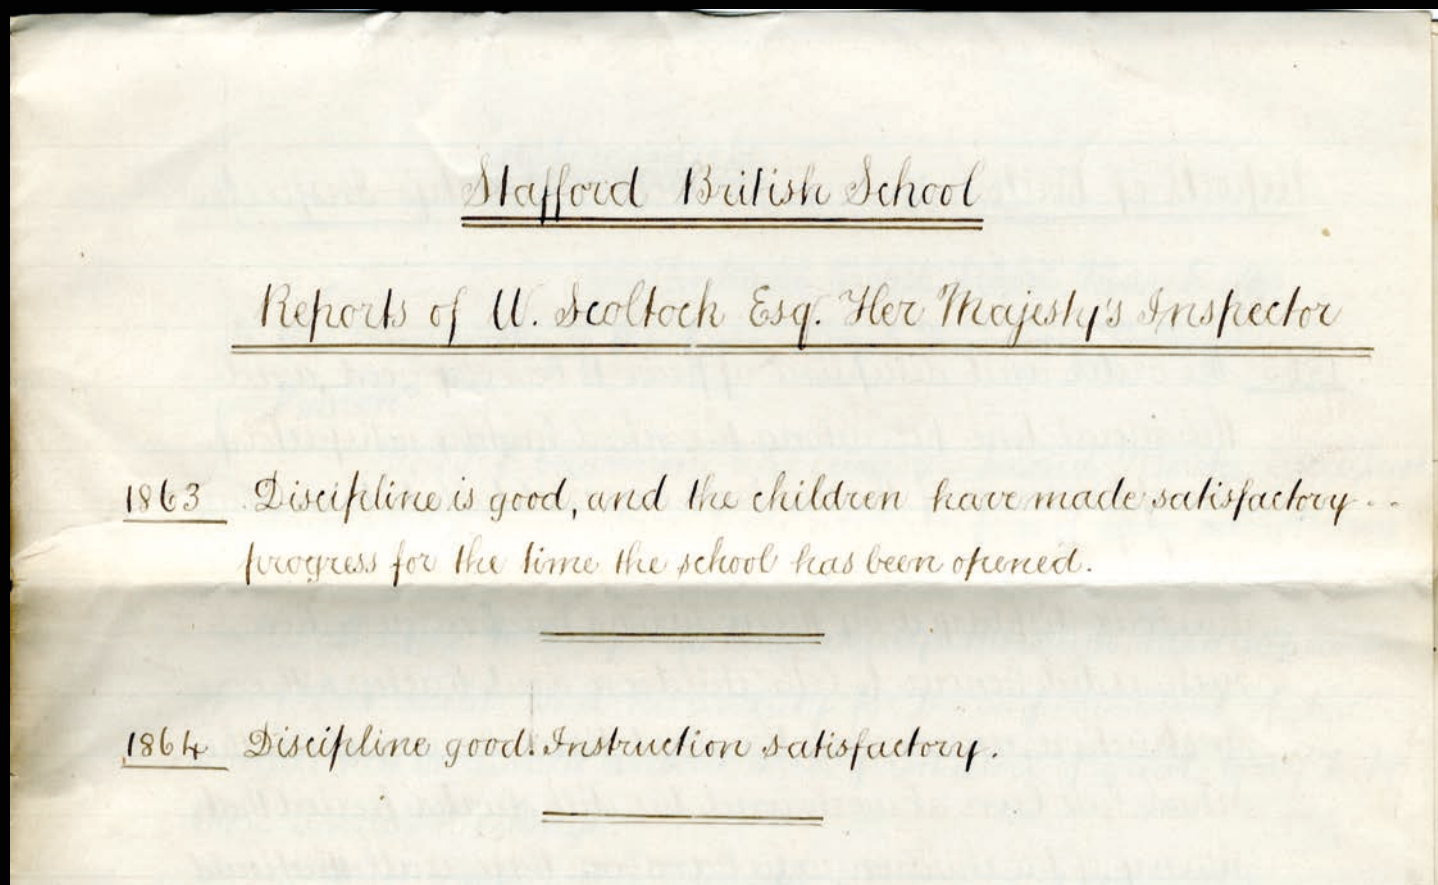 Stafford British School
Reports of W. Scoltock Esq. Her Majesty's Inspector
1863 Discipline is good, and the children have made satisfactory
progress for the time the school has been opened.
1864 Discipline good. Instruction satisfactory.